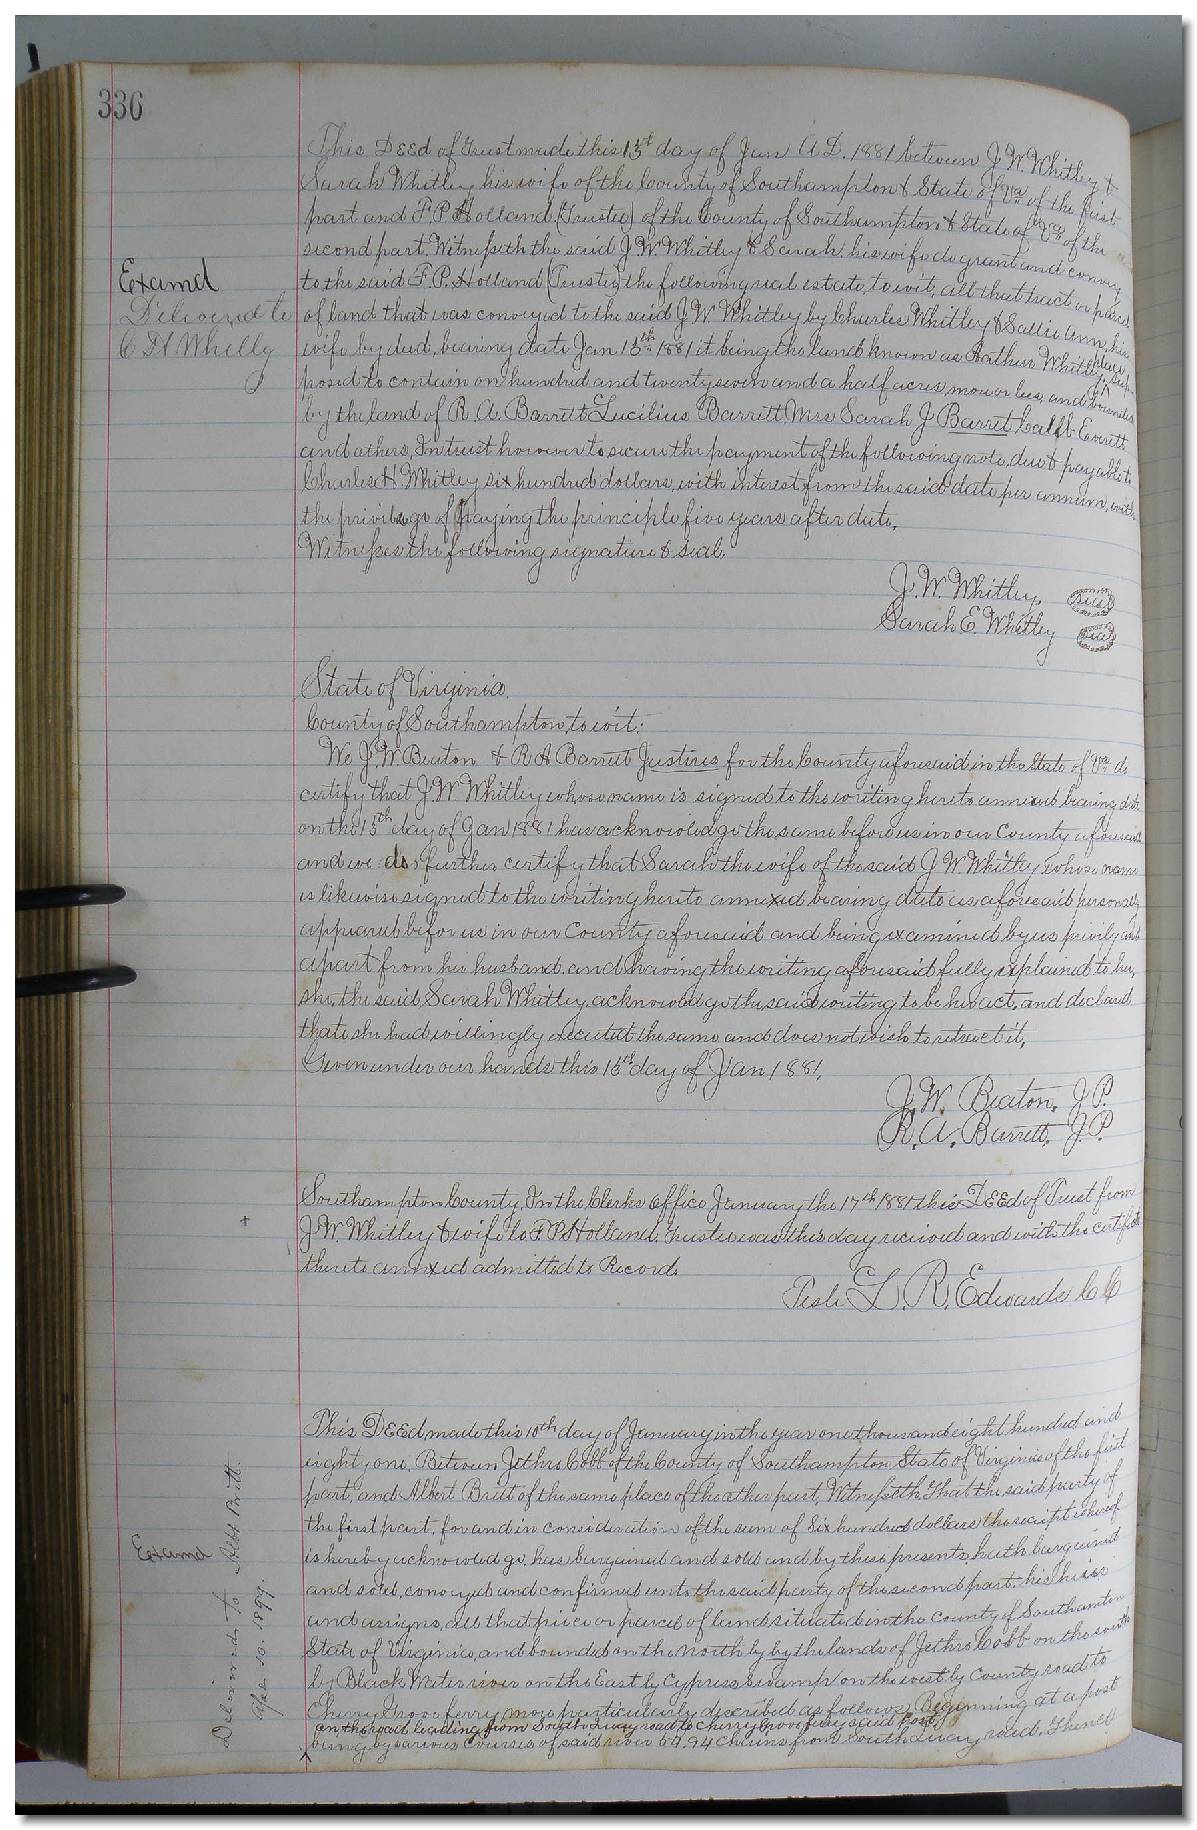 336
This DEEd of Trust made this 15th day of Jan A.D. 1881 between J. W. Whitley &
Sarah Whitley his wife of the County of Southampton & State of Va of the first
part and F. P. Holland (Trustee) of the County of Southampton & State of Va of the
second part. Witnesseth the said J. W. Whitley & Sarah his wife do grant and convey
to the said F. P. Holland (Trustee) the following real estate, to wit, all that tract or parcel
of land that was conveyed to the said J. W. Whitley by Charles Whitley & Sallie Ann, his
wife by deed, bearing date Jan 15th 1881 it being the land known as Arthur Whitley place, sup-
posed to contain on hundred and twenty seven and a half acres more or less, and bounded
by the land of R. A. Barrett Lucilius Barrett Mrs Sarah J Barret Calib Everett
and others, In trust however to secure the payment of the following note, due & payable to
Charles H Whitley six hundred dollars, with interest from the said date per annum, with
the privilege of paying the principle five years after date.
Witnesses the following signature & seal.
J. W. Whitley, Seal
Sarah E. Whitley Seal
Examd
Delivered to
C H Whitly
State of Virginia
County of Southampton, to wit:
We J. W. Beaton & R A Barrett Justices for the County aforesaid in the State of Va do
certify that J. W. Whitley whose name is signed to the writing hereto annexed bearing date
on the 15th day of Jan 1881 has acknowledge the same before us in our County aforesaid
and we do further certify that Sarah the wife of the said J. W. Whitley whose name
is likewise signed to the writing hereto annexed bearing date as aforesaid personally
appeared before us in our County aforesaid and being examined by us privily and
apart from his husband and having the writing aforesaid fully explained to her,
she, the said Sarah Whitley acknowledge the said writing to be her act, and declared
that she had willingly executed the same and does not wish to retract it,
Given under our hands this 15th day of Jan 1881,
J. W. Beaton, J. P.
R. A. Barrett, J. P.
Southampton County, In the Clerks Office January the 17th 1881 this DEEd of Trust from
J. W. Whitley & wife to F. P. Holland, Trustee was this day received and with the certificate
thereto annexed admitted to Record.
Teste L. R. Edwards C C
This DEEd, made this 10th day of January in the year one thousand eight hundred and
eighty one, Between Jethro Cobb of the County of Southampton State of Virginia of the first
part, and Albert Britt of the same place of the other part, Witnesseth, That the said party of
the first part, for and in consideration of the sum of Six hundred dollars the receipt whereof
is hereby acknowledge, has bargained and sold and by these presents, hath bargained
and sold, conveyed and confirmed unto the said party of the second part, his heirs
and assigns, all that piece or parcel of land situated in the County of Southamton
State of Virginia, and bounded on the North by by the lands of Jethro Cobb on the south
by Black Water river on the East by Cypress swamp on the west by County road to
Cherry Grove ferry, more particularly described as follows, Beginning at a post
on the road leading from South Quay road to Cherry Grove ferry said post
being by various courses of said river 64.94 chains from South Quay road. Thence
Examd
Delivered to Albt Britt.
Apr. 10. 1899.